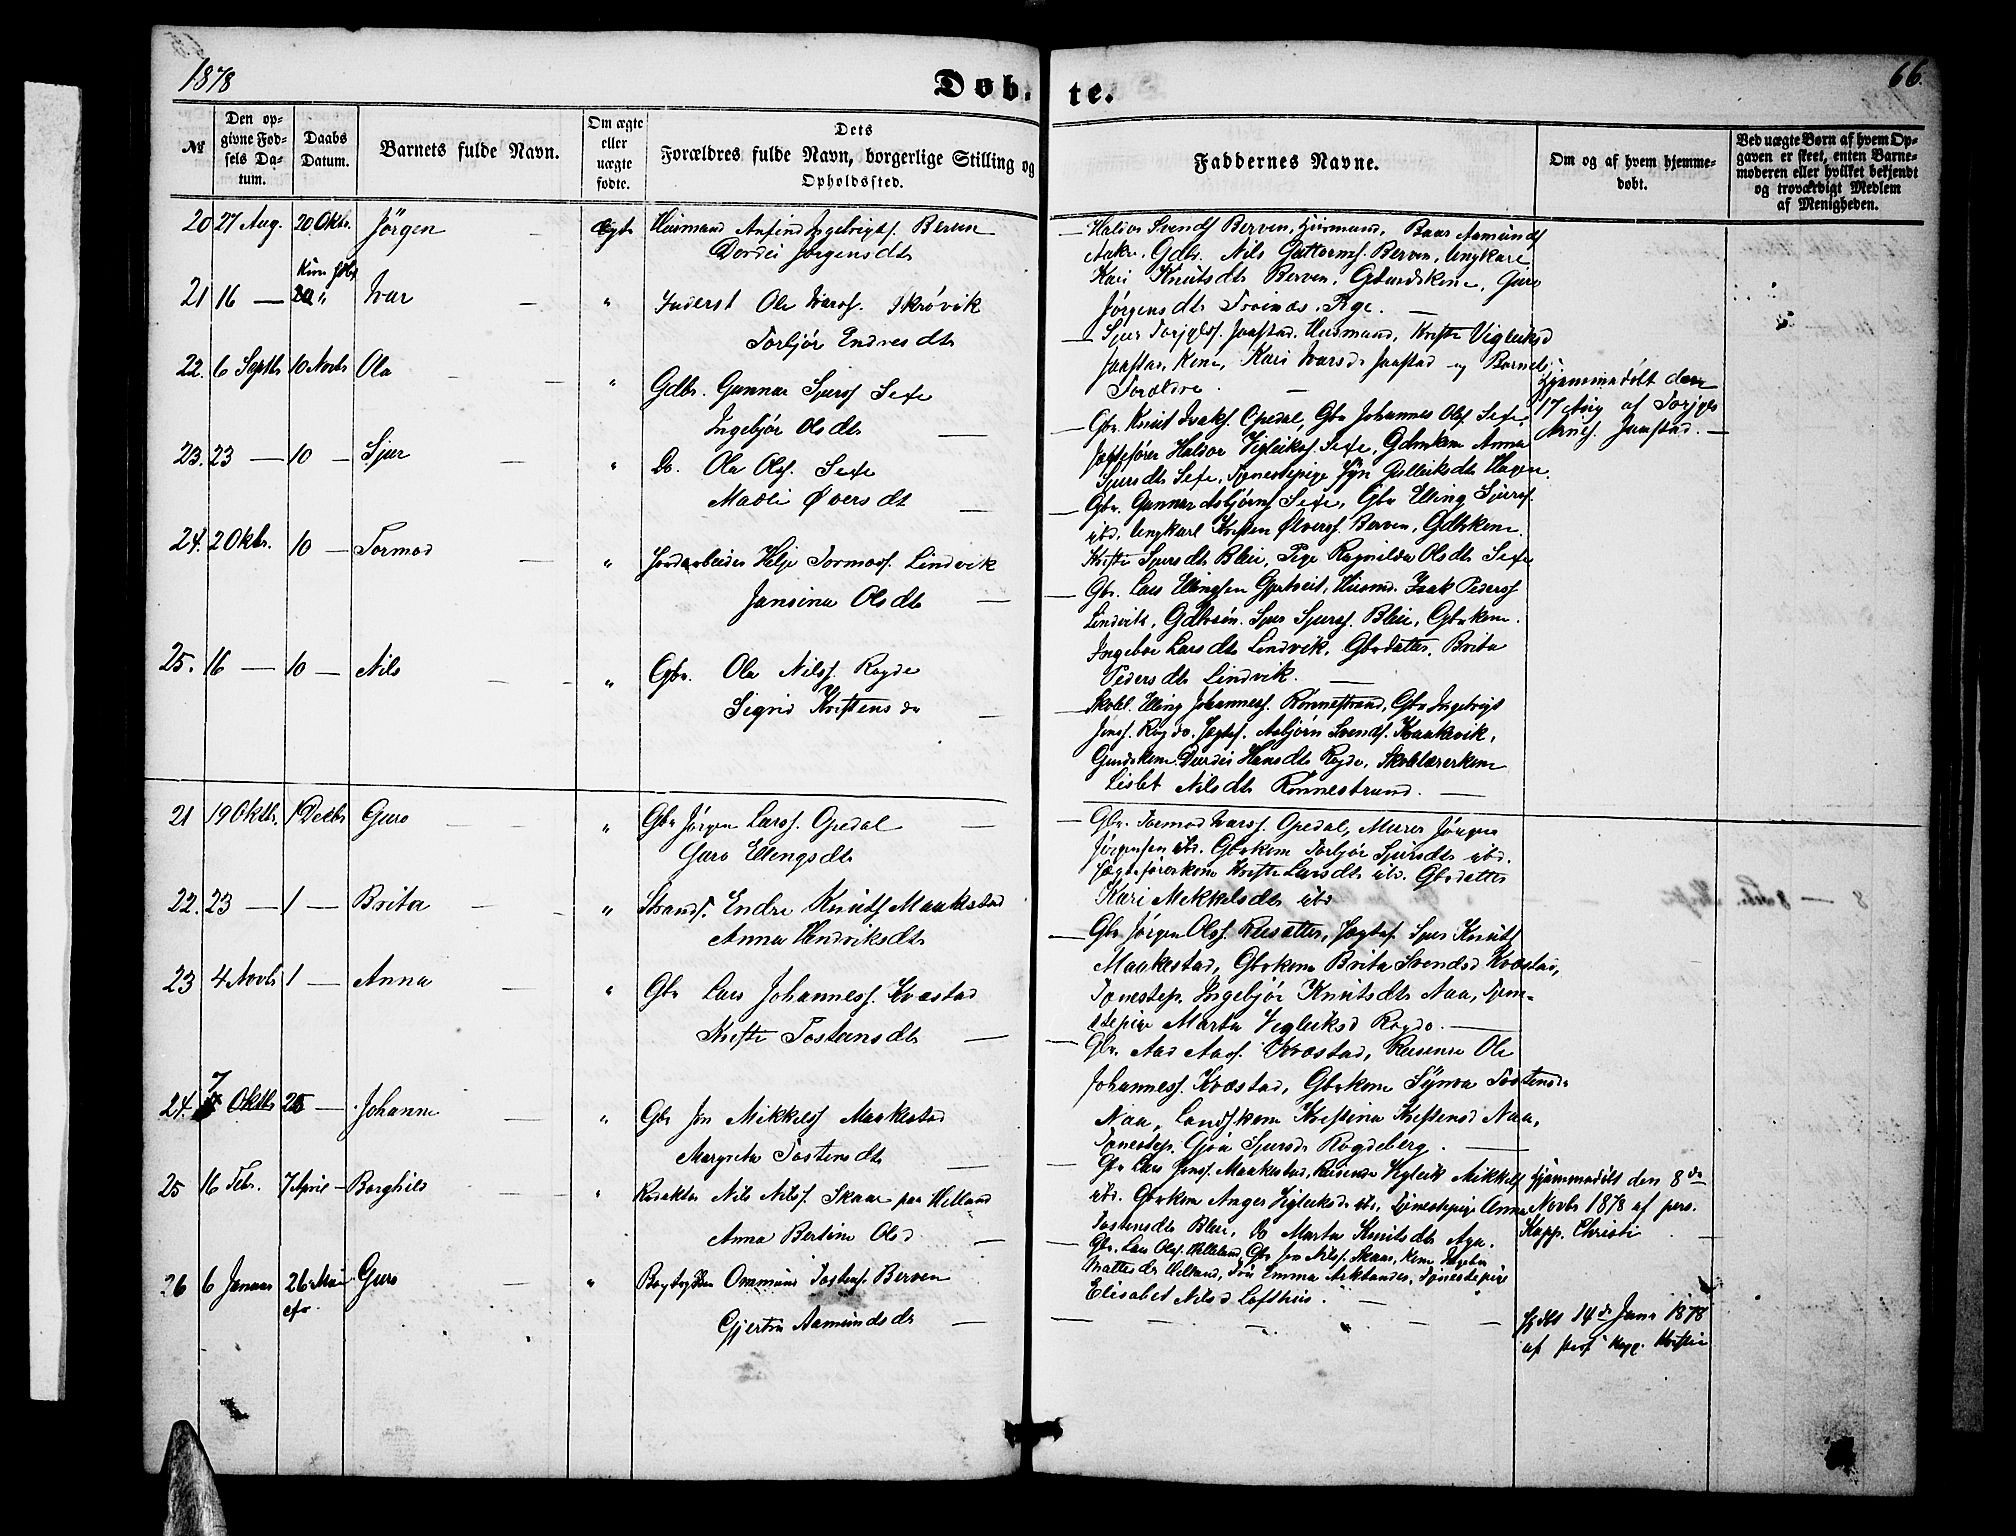 1878
Døb-
te.
66.
№
Den op-
givne Fød-
sels Da-
tum.
Daabs
Datum.
Barnets fulde Navn.
Om ægte
eller
uægte
fødte.
Dets
Forældres fulde Navn, borgerlige Stilling og
Opholdssted.
Faddernes Navne.
Om og af hvem hjemme-
døbt.
Ved uægte Børn af hvem Op-
gaven er skeet, enten Barne-
moderen eller hvilket bekjendt
og troværdigt Medlem
af Menigheden.
20 27 Aug. 20 Oktr. Jörgen — Ægte Husmand Anfind Ingebrigts. Berven
Dordei Jörgensdtr
Haldor Svends Berven, Husmand, Baar Aamunds
Aakre, Gdbr. Nils Guttorms. Berven, Ungkarl
Kari Knutsdtr Berven, Gbrudskone, Guro
Jörgensdtr Troinæs, Pige. —
21 16 — 20 " Ivar — " Inderst Ole Ivars. Skrövik
Torbjör Endresdtr
— Sjur Torjels. Jaastad, Husmand, Kristi Vigleiksd
Jaastad, Kone, Kari Ivarsdr Jaastad og Barnets
Forældre. —
Hjemmedöbt den
17 Aug af Torjels
Arnes. Jaastad. —
22. 6 Septbr 10 Novbr Ola — " Gdbr. Gunnar Sjurss Sexe
Ingebjör Olsdtr —
— Gbr. Knut Isaks. Opedal, Gbr Johannes Ols. Sexe,
Jagtefører Haldor Vigleiks. Sexe, Gdmkone Anna
Sjursdtr Sexe, Tjenestepige Syn Gulleiksdtr Hagen.
23. 23 — 10 — Sjur — " Do. Ola Ols. Sexe
Madli Øversdt —
— Gbr. Gunnar Asbjörns Sexe, Gbr Elling Sjurss.
ibd. Ungkarl Kristen Ølvers. Berven, Gdbrkone
Kristi Sjursdtr Bleie, Pige Ragnilda Olsdtr Sexe
24. 2 Oktr. 10 — Tormod — " Jordarbeider Helje Tormods. Lindvik
Jansina Olsdtr —
— Gbr. Lars Ellingsen Gjertveit, Husmd. Isak Peders
Lindvik, Gdbrsön. Sjur Sjurss. Bleie, Gbrkone.
Ingebor Larsdtr Lindvik, Gbrdatter, Brita
Pedersdtr Lindvik. —
25. 16 — 10 — Nils — " Gbr. Ola Nils. Rogde
Sigrid Kristensdr —
— Skolel. Elling Johanness. Rönnestrand, Gbr Ingebrigt
Jons. Rogde. Jagtef. Asbjörn Svends. Kraakevik,
Gaardskone Durdei Hansdtr Rogde, Skolelærerkone
Lisbet Nilsdtr Rönnestrand. —
21 19 Oktbr. 1 Decbr Guro — " Gbr Jörgen Larss. Opedal —
Guro Ellingsdtr
— Gbr. Tormod Ivarss. Opedal, Murer Jörgen
Jörgensen ibd. Gbrkone Torbjör Sjursdtr ibd.
Jagteförerkone Kristi Larsdtr ibd. Gbrdatter
Kari Mekkelsdtr ibd
22. 23 — 1 — Brita — " Strands. Endre Knuts Maakestad
Anna Hendriksdtr
— Gbr Jörgen Ols. Reisæter, Jagtef. Sjur Knuts
Maakestad, Gbrkone Brita Svendsd Kvæstad,
Tjenestep. Ingebjör Knutsdtr Naa, Tjene-
stepige Marta Vigleiksd Rogde. —
23 4 Novbr 1 — Anna — " Gbr Lars Johanness. Kvæstad
Kristi Tostensdtr —
— Gbr. Aad Aads. Kvæstad, Reisende Ole
Johanness. Kvæstad, Gbrkone Synva Tostensdr
Naa, Landskone Kristina Kristensd Naa,
Tjenestep. Gjöa Sjursdr Rogdeberg. —
24. 7 Oktbr 25 — Johanne — " Gbr Jon Mikkels Maakestad
Margreta Tostensdtr —
— Gbr Lars Jons. Maakestad, Reisende Vigleik Mikkels
ibd. Gbrkone Anger Vigleiksdr ibd, Tjenestepige Anna
Tostensdtr Bleie, Do Marta Knutsdtr Aga.
Hjemmedöbt den 8de
Novbr 1878 af pers.
Kapp. Christi —
25 16 Febr. 7 April — Borghild — " Redaktör Nils Nils. Skaar paa Helland
Anna Bertine Olsd —
Gbr. Lars Ols. Helleland, Gbr Jon Nils. Skaar, Kone Ingebor
Mattesdr Helland, Frk Emma Aktlander, Tjenestepige
Elisabet Nilsd Lofthus. —
26 6 Januar 26 Mai Guro — " Ommund Tostens. Berven
Gjertru Aamundsdr —
Hjdbt 14de Janr 1878
af pers Kapp. Kristie